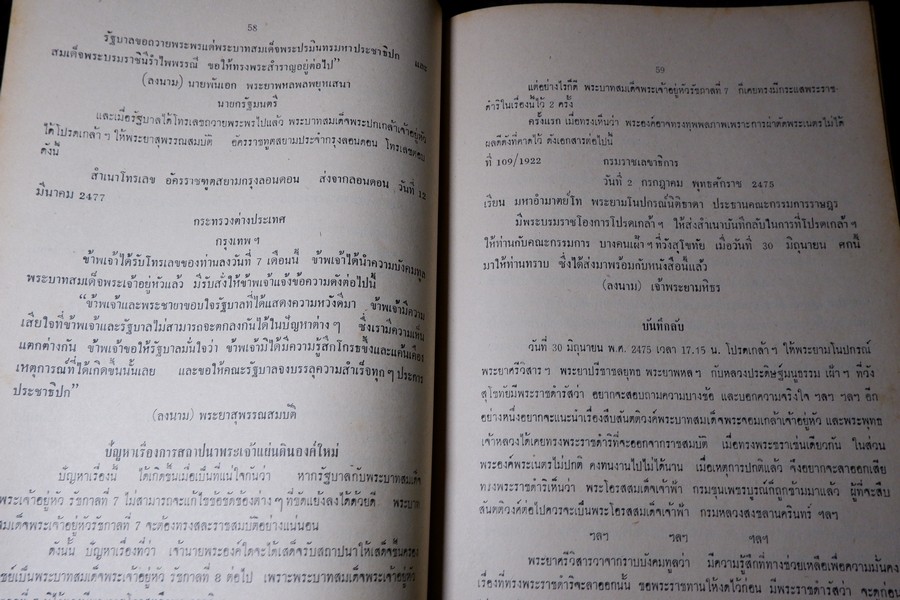 58
รัฐบาลขอถวายพระพรแด่พระบาทสมเด็จพระปรมินทรมหาประชาธิปก และ
สมเด็จพระบรมราชินีรำไพพรรณี ขอให้ทรงพระสำราญอยู่ต่อไป"
(ลงนาม) นายพันเอก พระยาพหลพลพยุหเสนา
นายกรัฐมนตรี
และเมื่อรัฐบาลได้โทรเลขถวายพระพรไปแล้ว พระบาทสมเด็จพระปกเกล้าเจ้าอยู่หัว
ได้โปรดเกล้า ฯ ให้พระยาสุพรรณสมบัติ อัครราชทูตสยามประจำกรุงลอนดอน โทรเลขตอบ
ดังนี้
สำเนาโทรเลข อัครราชทูตสยามกรุงลอนดอน ส่งจากลอนดอน วันที่ 12
มีนาคม 2477
กระทรวงต่างประเทศ
กรุงเทพ ฯ
ข้าพเจ้าได้รับโทรเลขของท่านลงวันที่ 7 เดือนนี้ ข้าพเจ้าได้นำความบังคมทูล
พระบาทสมเด็จพระเจ้าอยู่หัวแล้ว มีรับสั่งให้ข้าพเจ้าแจ้งข้อความดังต่อไปนี้
"ข้าพเจ้าและพระชายาขอบใจรัฐบาลที่ได้แสดงความหวังดีมา ข้าพเจ้ามีความ
เสียใจที่ข้าพเจ้าและรัฐบาลไม่สามารถจะตกลงกันได้ในปัญหาต่าง ๆ ซึ่งเรามีความเห็น
แตกต่างกัน ข้าพเจ้าขอให้รัฐบาลมั่นใจว่า ข้าพเจ้ามิได้มีความรู้สึกโกรธขึ้งและแค้นเคือง
เหตุการณ์ที่ได้เกิดขึ้นนั้นเลย และขอให้คณะรัฐบาลจงบรรลุความสำเร็จทุก ๆ ประการ
ประชาธิปก"
(ลงนาม) พระยาสุพรรณสมบัติ
ปัญหาเรื่องการสถาปนาพระเจ้าแผ่นดินองค์ใหม่
ปัญหาเรื่องนี้ ได้เกิดขึ้นเมื่อเป็นที่แน่ใจกันว่า หากรัฐบาลกับพระบาทสมเด็จ
พระเจ้าอยู่หัว รัชกาลที่ 7 ไม่สามารถจะแก้ไขข้อขัดข้องต่าง ๆ ที่ขัดแย้งลงได้ด้วยดี พระบาท
สมเด็จพระเจ้าอยู่หัวรัชกาลที่ 7 จะต้องทรงสละราชสมบัติอย่างแน่นอน
ดังนั้น ปัญหาเรื่องที่ว่า เจ้านายพระองค์ใดจะได้เสด็จรับสถาปนาให้เสด็จขึ้นครอง
เป็นพระบาทสมเด็จพระเจ้าอยู่หัว รัชกาลที่ 8 ต่อไป เพราะพระบาทสมเด็จพระเจ้าอยู่หัว
59
แต่อย่างไรก็ดี พระบาทสมเด็จพระเจ้าอยู่หัวรัชกาลที่ 7 ก็เคยทรงมีกระแสพระราช-
ดำริในเรื่องนี้ไว้ 2 ครั้ง
ครั้งแรก เมื่อทรงเห็นว่า พระองค์อาจทรงทุพพลภาพเพราะการผ่าตัดพระเนตรไม่ได้
ผลดีดังที่คาดไว้ ดังเอกสารต่อไปนี้
ที่ 109/1922 กรมราชเลขาธิการ
วันที่ 2 กรกฎาคม พุทธศักราช 2475
เรียน มหาอำมาตย์โท พระยามโนปกรณ์นิติธาดา ประธานคณะกรรมการราษฎร
มีพระบรมราชโองการโปรดเกล้า ฯ ให้ส่งสำเนาบันทึกลับในการที่โปรดเกล้า ฯ
ให้ท่านกับคณะกรรมการ บางคนเฝ้า ฯ ที่วังสุโขทัย เมื่อวันที่ 30 มิถุนายน ศกนี้
มาให้ท่านทราบ ซึ่งได้ส่งมาพร้อมกับหนังสือนี้แล้ว
(ลงนาม) เจ้าพระยามหิธร
บันทึกลับ
วันที่ 30 มิถุนายน พ.ศ. 2475 เวลา 17.15 น. โปรดเกล้า ฯ ให้พระยามโนปกรณ์
พระยาศรีวิสาร ฯ พระยาปรีชาชลยุทธ พระยาพหล ฯ กับหลวงประดิษฐ์มนูธรรม เฝ้า ฯ ที่วัง
สุโขทัยมีพระราชดำรัสว่า อยากจะสอบถามความบางข้อ และบอกความจริงใจ ฯลฯ ฯลฯ อีก
อย่างหนึ่งอยากจะแนะนำเรื่องสืบสันตติวงศ์พระบาทสมเด็จพระจอมเกล้าเจ้าอยู่หัว และพระพุทธ
เจ้าหลวงได้เคยทรงพระราชดำริที่จะออกจากราชสมบัติ เมื่อทรงพระชราเช่นเดียวกัน ในส่วน
พระองค์พระเนตรไม่ปกติ คงทนงานไปไม่ได้นาน เมื่อเหตุการปกติแล้ว จึงอยากจะลาออกเสีย
ทรงพระราชดำริเห็นว่า พระโอรสสมเด็จเจ้าฟ้า กรมขุนเพชรบูรณ์ก็ถูกข้ามมาแล้ว ผู้ที่จะสืบ
สันตติวงศ์ต่อไปควรจะเป็นพระโอรสสมเด็จเจ้าฟ้า กรมหลวงสงขลานครินทร์ ฯลฯ
ฯลฯ ฯลฯ ฯลฯ
พระยาศรีวิสารวาจากราบบังคมทูลว่า มีความรู้สึกที่ทางช่วยเหลือเพื่อความมั่นคง
เรื่องที่ทรงพระราชดำริจะลาออกนั้น ขอพระราชทานให้งดไว้ก่อน มีพระราชดำรัสว่า จะงดก่อน